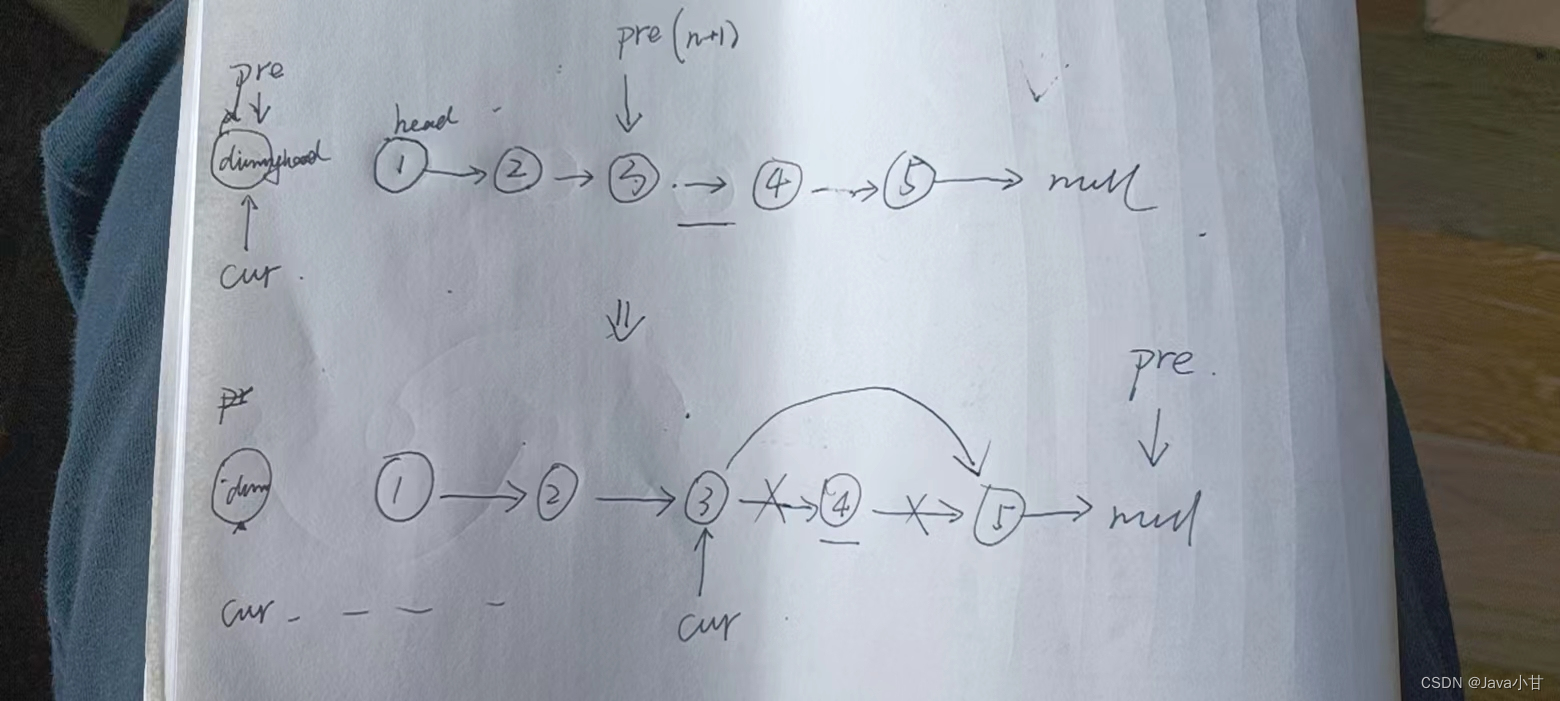 pre (n+1)
pre
head
dummyhead ① → ② → ③ → ④ → ⑤ → null
cur .
⇓
pre .
pr
dum ① → ② → ③ → ④ → ⑤ → null
cur - - - - cur
CSDN @Java小甘